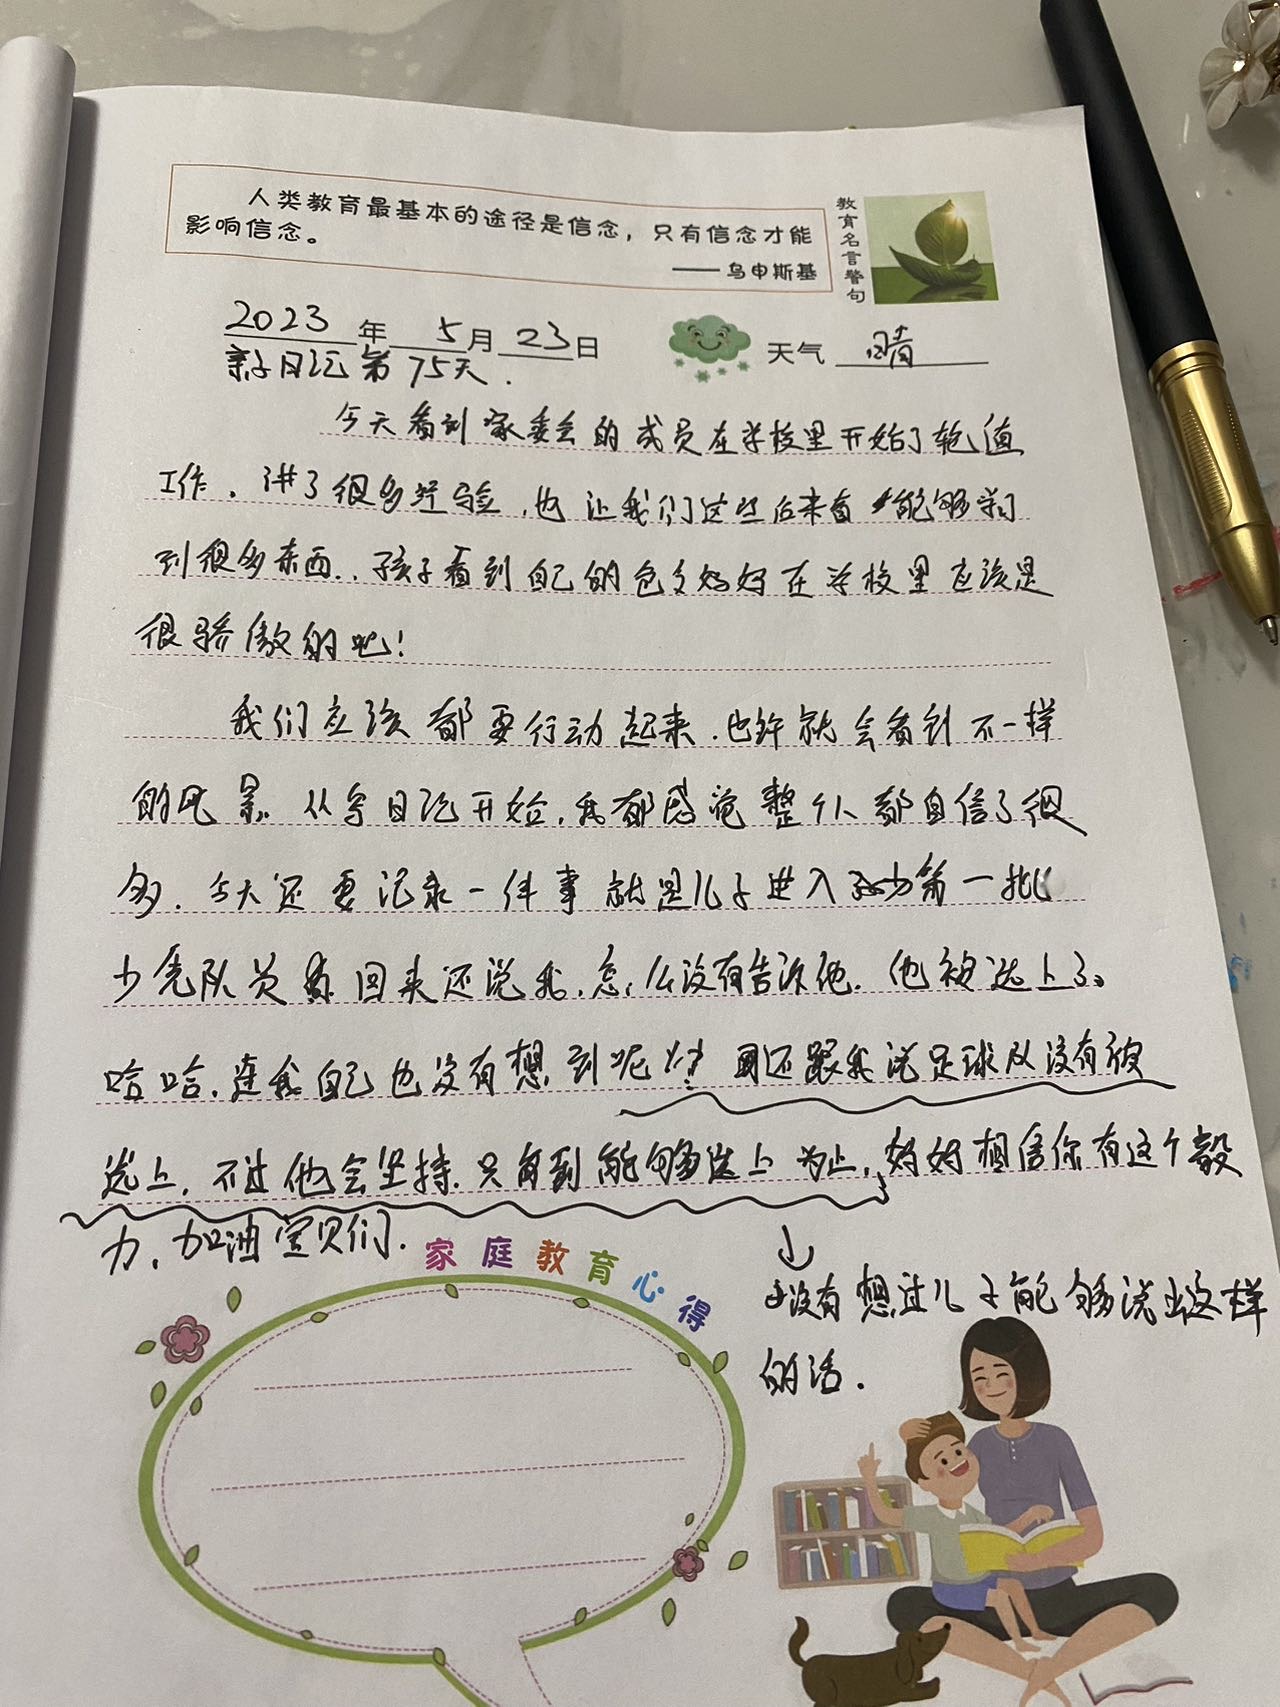 人类教育最基本的途径是信念，只有信念才能
影响信念。
——乌申斯基
教育名言警句
2023年5月23日
天气 晴
亲子日记第75天.
今天看到家委会的成员在学校里开始了轮值
工作，讲了很多经验，也让我们这些后来者能够学习
到很多东西..孩子看到自己的爸爸妈妈在学校里应该是
很骄傲的吧!
我们应该都要行动起来.也许就会看到不一样
的风景.从写日记开始,我都感觉整个人都自信了很
多.今天还要记录一件事就是儿子进入第一批
少先队员 回来还说我,怎么没有告诉他.他被选上了。
哈哈,连我自己也没有想到呢 还跟我说足球队没有被
选上,不过他会坚持.只到能够选上为止,妈妈相信你有这个毅
力.加油宝贝们.
没有想过儿子能够说出这样
的话.
家庭教育心得